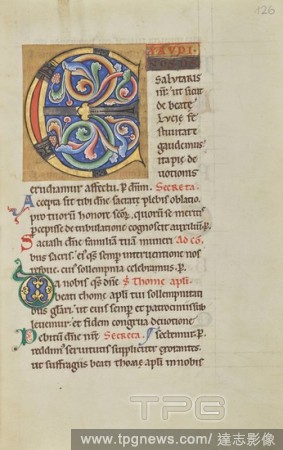 126
EXAUDI
NOS DS
salutaris
nr̄. ut sicut
de beatę
Lucię fes
tiuitate
gaudemus
ita pię de
uotionis
erudiamur affectu. p dn̄m. Secreta.
Accepta sit tibi dn̄e sacratę plebis oblatio
pro tuorū honore scōꝝ. quorū se meritis
percepisse de tribulatione cognoscit auxiliū. p
Saciasti dn̄e familiā tuā munerib; Ad cō
bus sacris. eius semper interuentione nos
refoue. cuius sollempnia celebramus. p.
Da nobis qs dn̄e Thome apl̄i
beati thome apl̄i tui sollempnitati
bus gl̄ari. ut eius semper et patrociniis sub
leuemur. et fidem congrua deuotione
Debitum dn̄e nr̄ę Secreta. sectemur. p.
reddim⁹ seruitutis suppliciter exorantes.
ut suffragiis beati thome apl̄i in nobis
TPG
www.tpgnews.com/達志影像